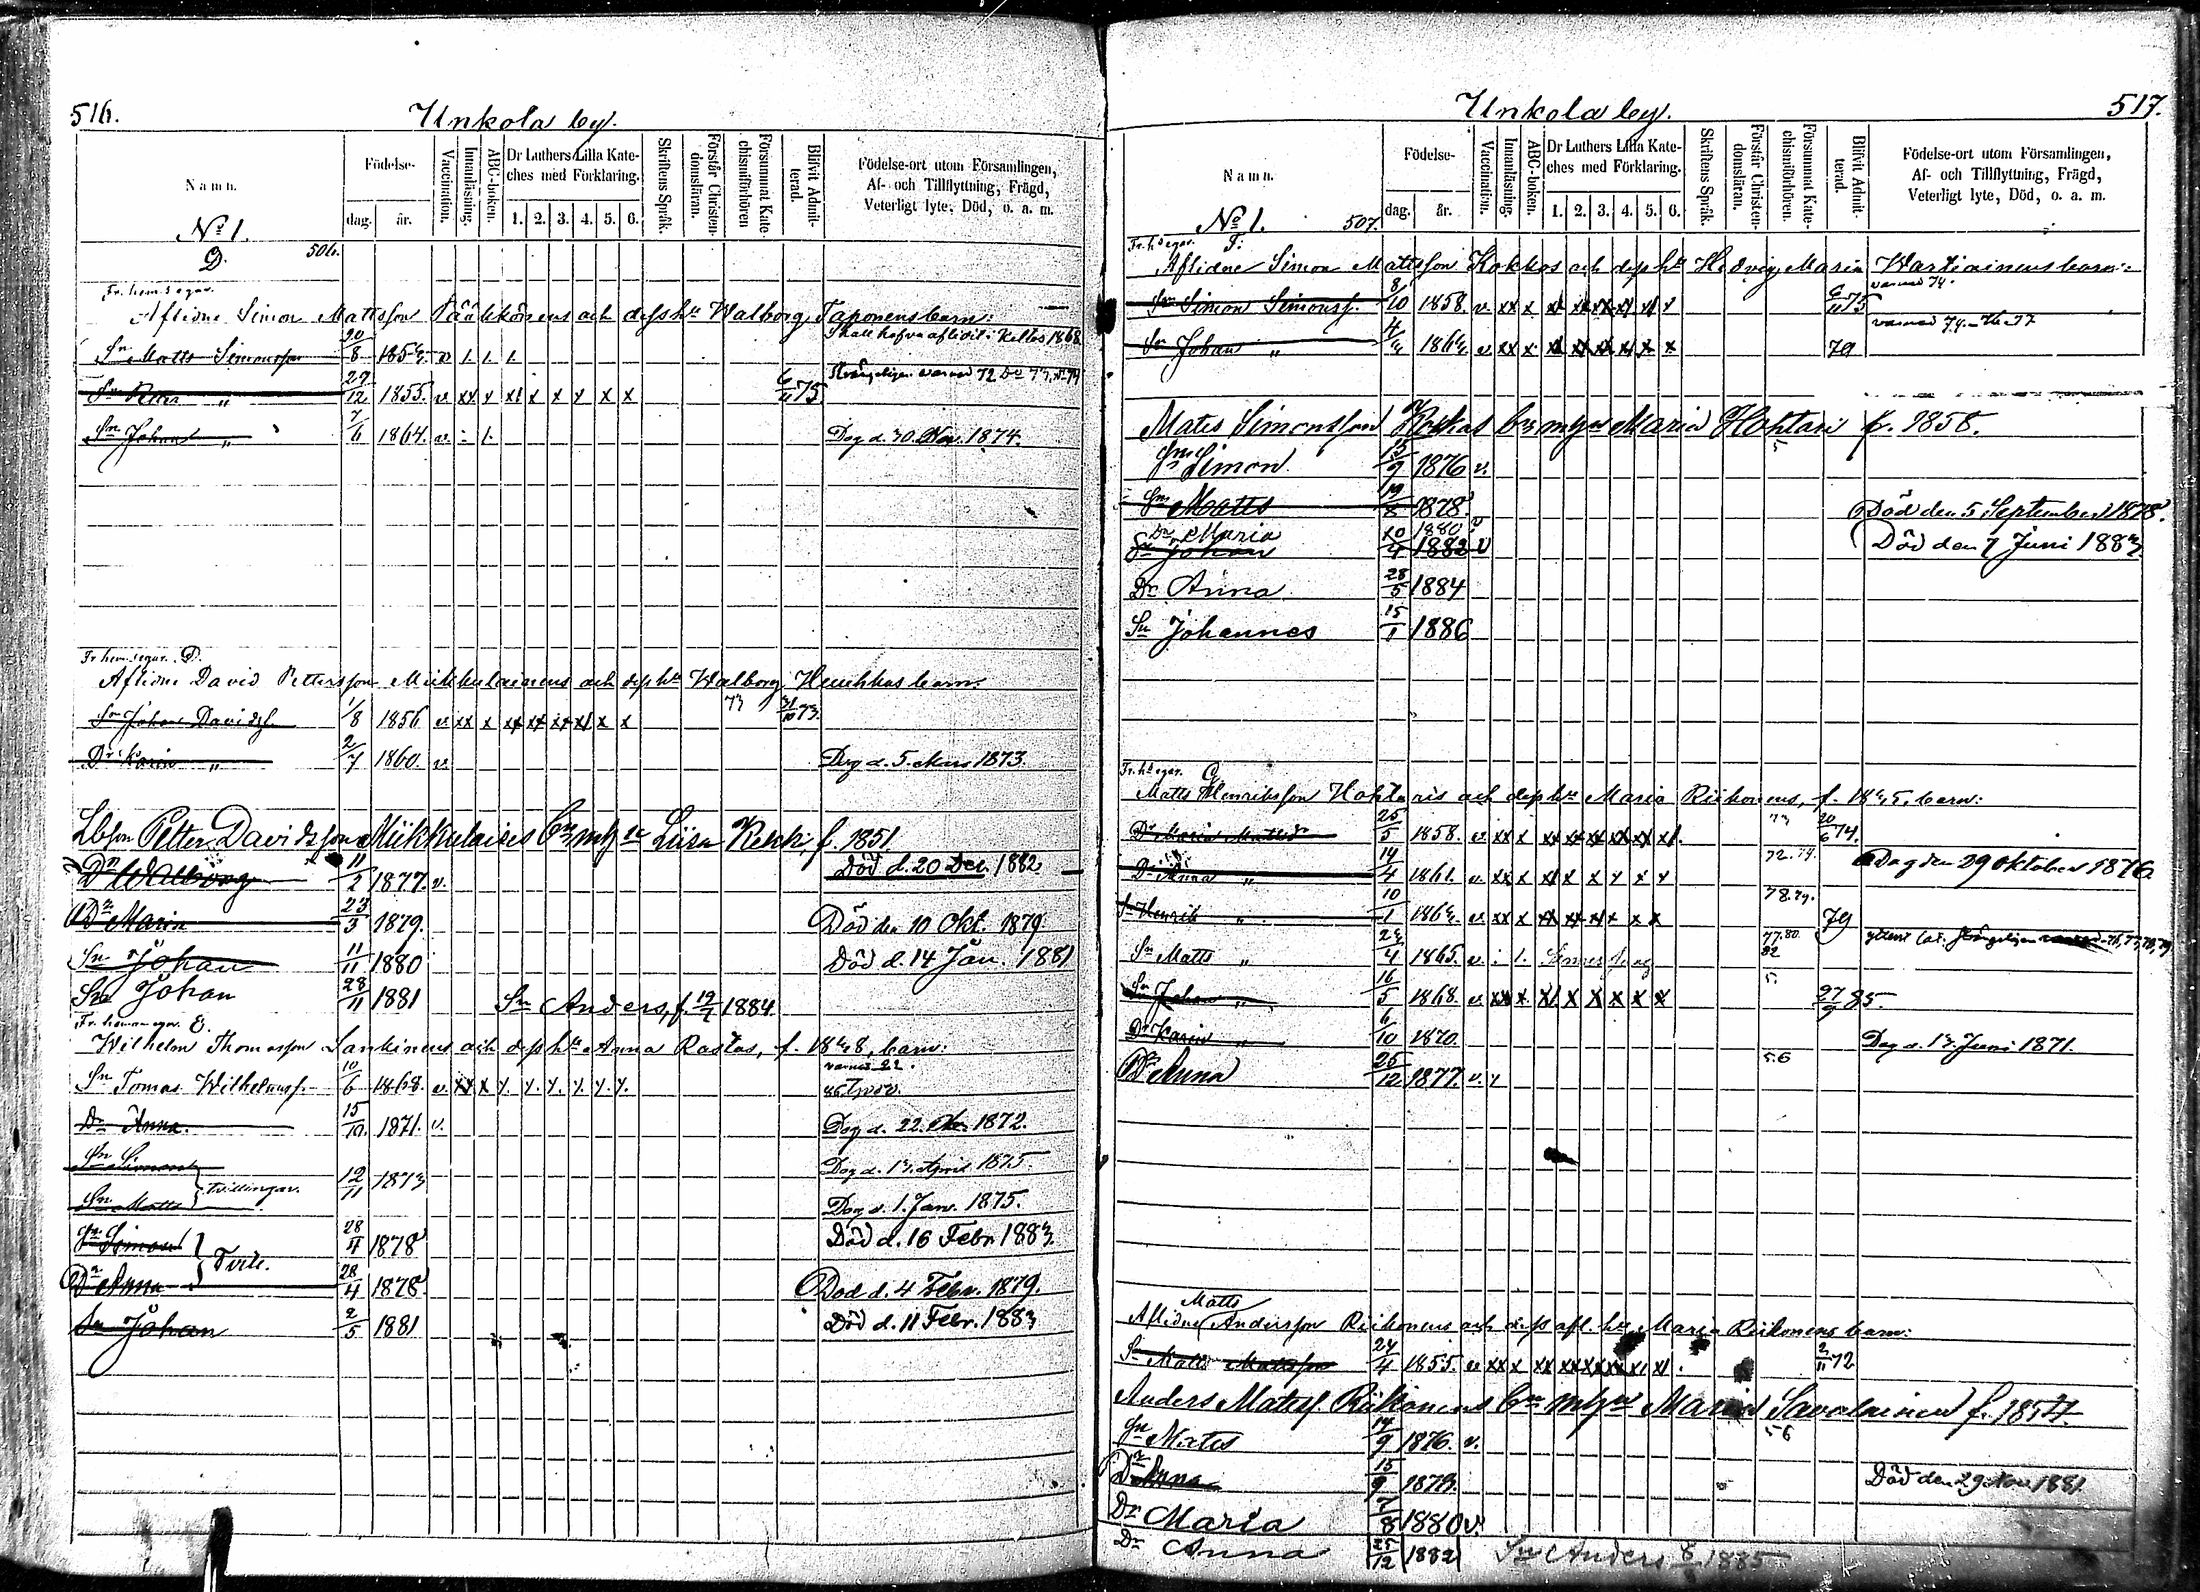 516.
Unkola by.
Namn.
Födelse-
dag. år.
Vaccination.
Innanläsning.
ABC-boken.
Dr Luthers Lilla Kate-
ches med Förklaring.
1. 2. 3. 4. 5. 6.
Skriftens Språk.
Förstår Christen-
domsläran.
Försummat Kate-
chismiförhören
Blifvit Admit-
terad.
Födelse-ort utom Församlingen,
Af- och Tillflyttning, Frägd,
Veterligt lyte, Död, o. a. m.
No 1.
D. 506.
Fr. hem.s egar.
Aflidne Simon Mattsson Pääkkönens och dess hu Walborg Taponens barn:
Sn Matts Simonsson 20/8 1854 v 1. 1. 1 Skall hafva aflidit i Keltis 1868
Sn 29/12 1855. v xx x x1 x x x x x 6/11 75
Sn Johan " 7/6 1864. v. - 1. Dog d. 30 Nov. 1874.
Fr hem.s egar. D.
Aflidne David Pettersson Mikkulainens och dess hu Walborg Heuhkas barn:
Sn Johan Davidss. 1/8 1856 v xx x xx xx xx x1 x x 73 31/10 73.
Dr Karin " 2/7 1860. v. Dog d. 5 Mars 1873.
Lbson Petter Davidsson Mikkulaises bm m h hu Liisa Rekki f. 1851.
Dr Walborg 11/2 1877. v. Död d. 20 Dec. 1882
Dr Maria 23/3 1879. Död den 10 Okt. 1879
Sn Johan 11/11 1880 Död d. 14 Jan. 1881
Sn Johan 28/11 1881 Sn Anders, f. 19/7 1884
Fr. hemman egar. E.
Wilhelm Thomasson Lankinens och dess hu Anna Rastas, f. 1848, barn:
Sn Tomas Wilhelmss. 10/6 1868. v. xx x x. x. x. x. x. x. varnad 22.
Dr Anna. 15/10. 1871. v. Dog d. 22. 1872.
Sn Simon Dog d. 13. April 1875.
tvillingar. 12/11 1873
Sn Matts Dog d. 1. Jan. 1875.
Sn Simon 28/4 1878 Död d. 16 Febr 1883
Tvill.
Dr Anna 28/4 1878 Död d. 4 Febr. 1879.
Sn Johan 2/5 1881 Död d. 11 Febr. 1883
517.
Unkola by.
Namn.
Födelse-
dag. år.
Vaccination.
Innanläsning.
ABC-boken.
Dr Luthers Lilla Kate-
ches med Förklaring.
1. 2. 3. 4. 5. 6.
Skriftens Språk.
Förstår Christen-
domsläran.
Försummat Kate-
chismiförhören.
Blifvit Admit-
terad.
Födelse-ort utom Församlingen,
Af- och Tillflyttning, Frägd,
Veterligt lyte, Död, o. a. m.
No 1. 507.
Fr. hs egar. F:
Aflidne Simon Mattsson Kokkos och dess hu Hedvig Maria Wartiainens barn:
Sn Simon Simonss. 8/10 1858. v. xx x x xx xx x x1 x 6/11 75 varnad 74.
Sn Johan " 4/4 1864 v xx x x x x x x x 79 varnad 74.-76-77
Mats Simonsson Kokkos bm m h hu Maria Hohtari f. 1858.
Sn Simon. 15/9 1876 v. 5
Sn Matts 19/8 1878. Död den 5 September 1878.
Dr Maria 1880 v
Sn Johan 10/4 1882 v Död den 7 Juni 1883
Dr Anna 28/5 1884
Sn Johannes 15/1 1886
Fr. hs egar. G
Matts Henriksson Hohtaris och dess hu Maria Riikonens, f. 1835, barn:
Dr Maria Mattsdr 25/5 1858. v. xx x xx xx xx xx xx x1. 73 20/6 74.
Dr Anna " 14/4 1861. v. xx x x1 x x x x x 72. 74. Dog den 29 Oktober 1876
Sn Henrik " 10/1 1863. v. xx x x1 xx x1 x x x 78. 79. 79
Sn Matts " 24/4 1865. v. : 1. Sinnessvag 77. 80. 82
Sn Johan " 16/5 1868. v. xx x. x1 x x x x x 5. 27/9 85.
Dr Karin " 6/10 1870. Dog d. 13. Juni 1871.
Dr Anna 25/12 1877. v. x 5.6
Matts
Aflidne Andersson Riikonens och dess afl. hu Maria Riikonens barn:
Sn Matts Mattsson 24/4 1855. v xx x xx xx xx xx x1 x1. 2/11 72
Anders Matss. Riikonens bm m h hu Maria Savolainen f. 1854.
Sn Mats 14/9 1876. v. 5 6
Dr Anna 15/9 1878. Död den 29 Nov. 1881.
Dr Maria 7/8 1880 v.
Dr Anna 25/12 1882 Sn Anders 1885